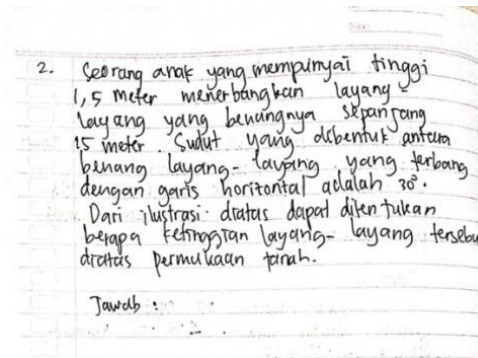 2. Seorang anak yang mempunyai tinggi
1,5 meter menerbangkan layang-
layang yang benangnya sepanjang
15 meter. Sudut yang dibentuk antara
benang layang-layang yang terbang
dengan garis horizontal adalah 30°.
Dari ilustrasi diatas dapat ditentukan
berapa ketinggian layang-layang tersebu
diatas permukaan tanah.
Jawab :